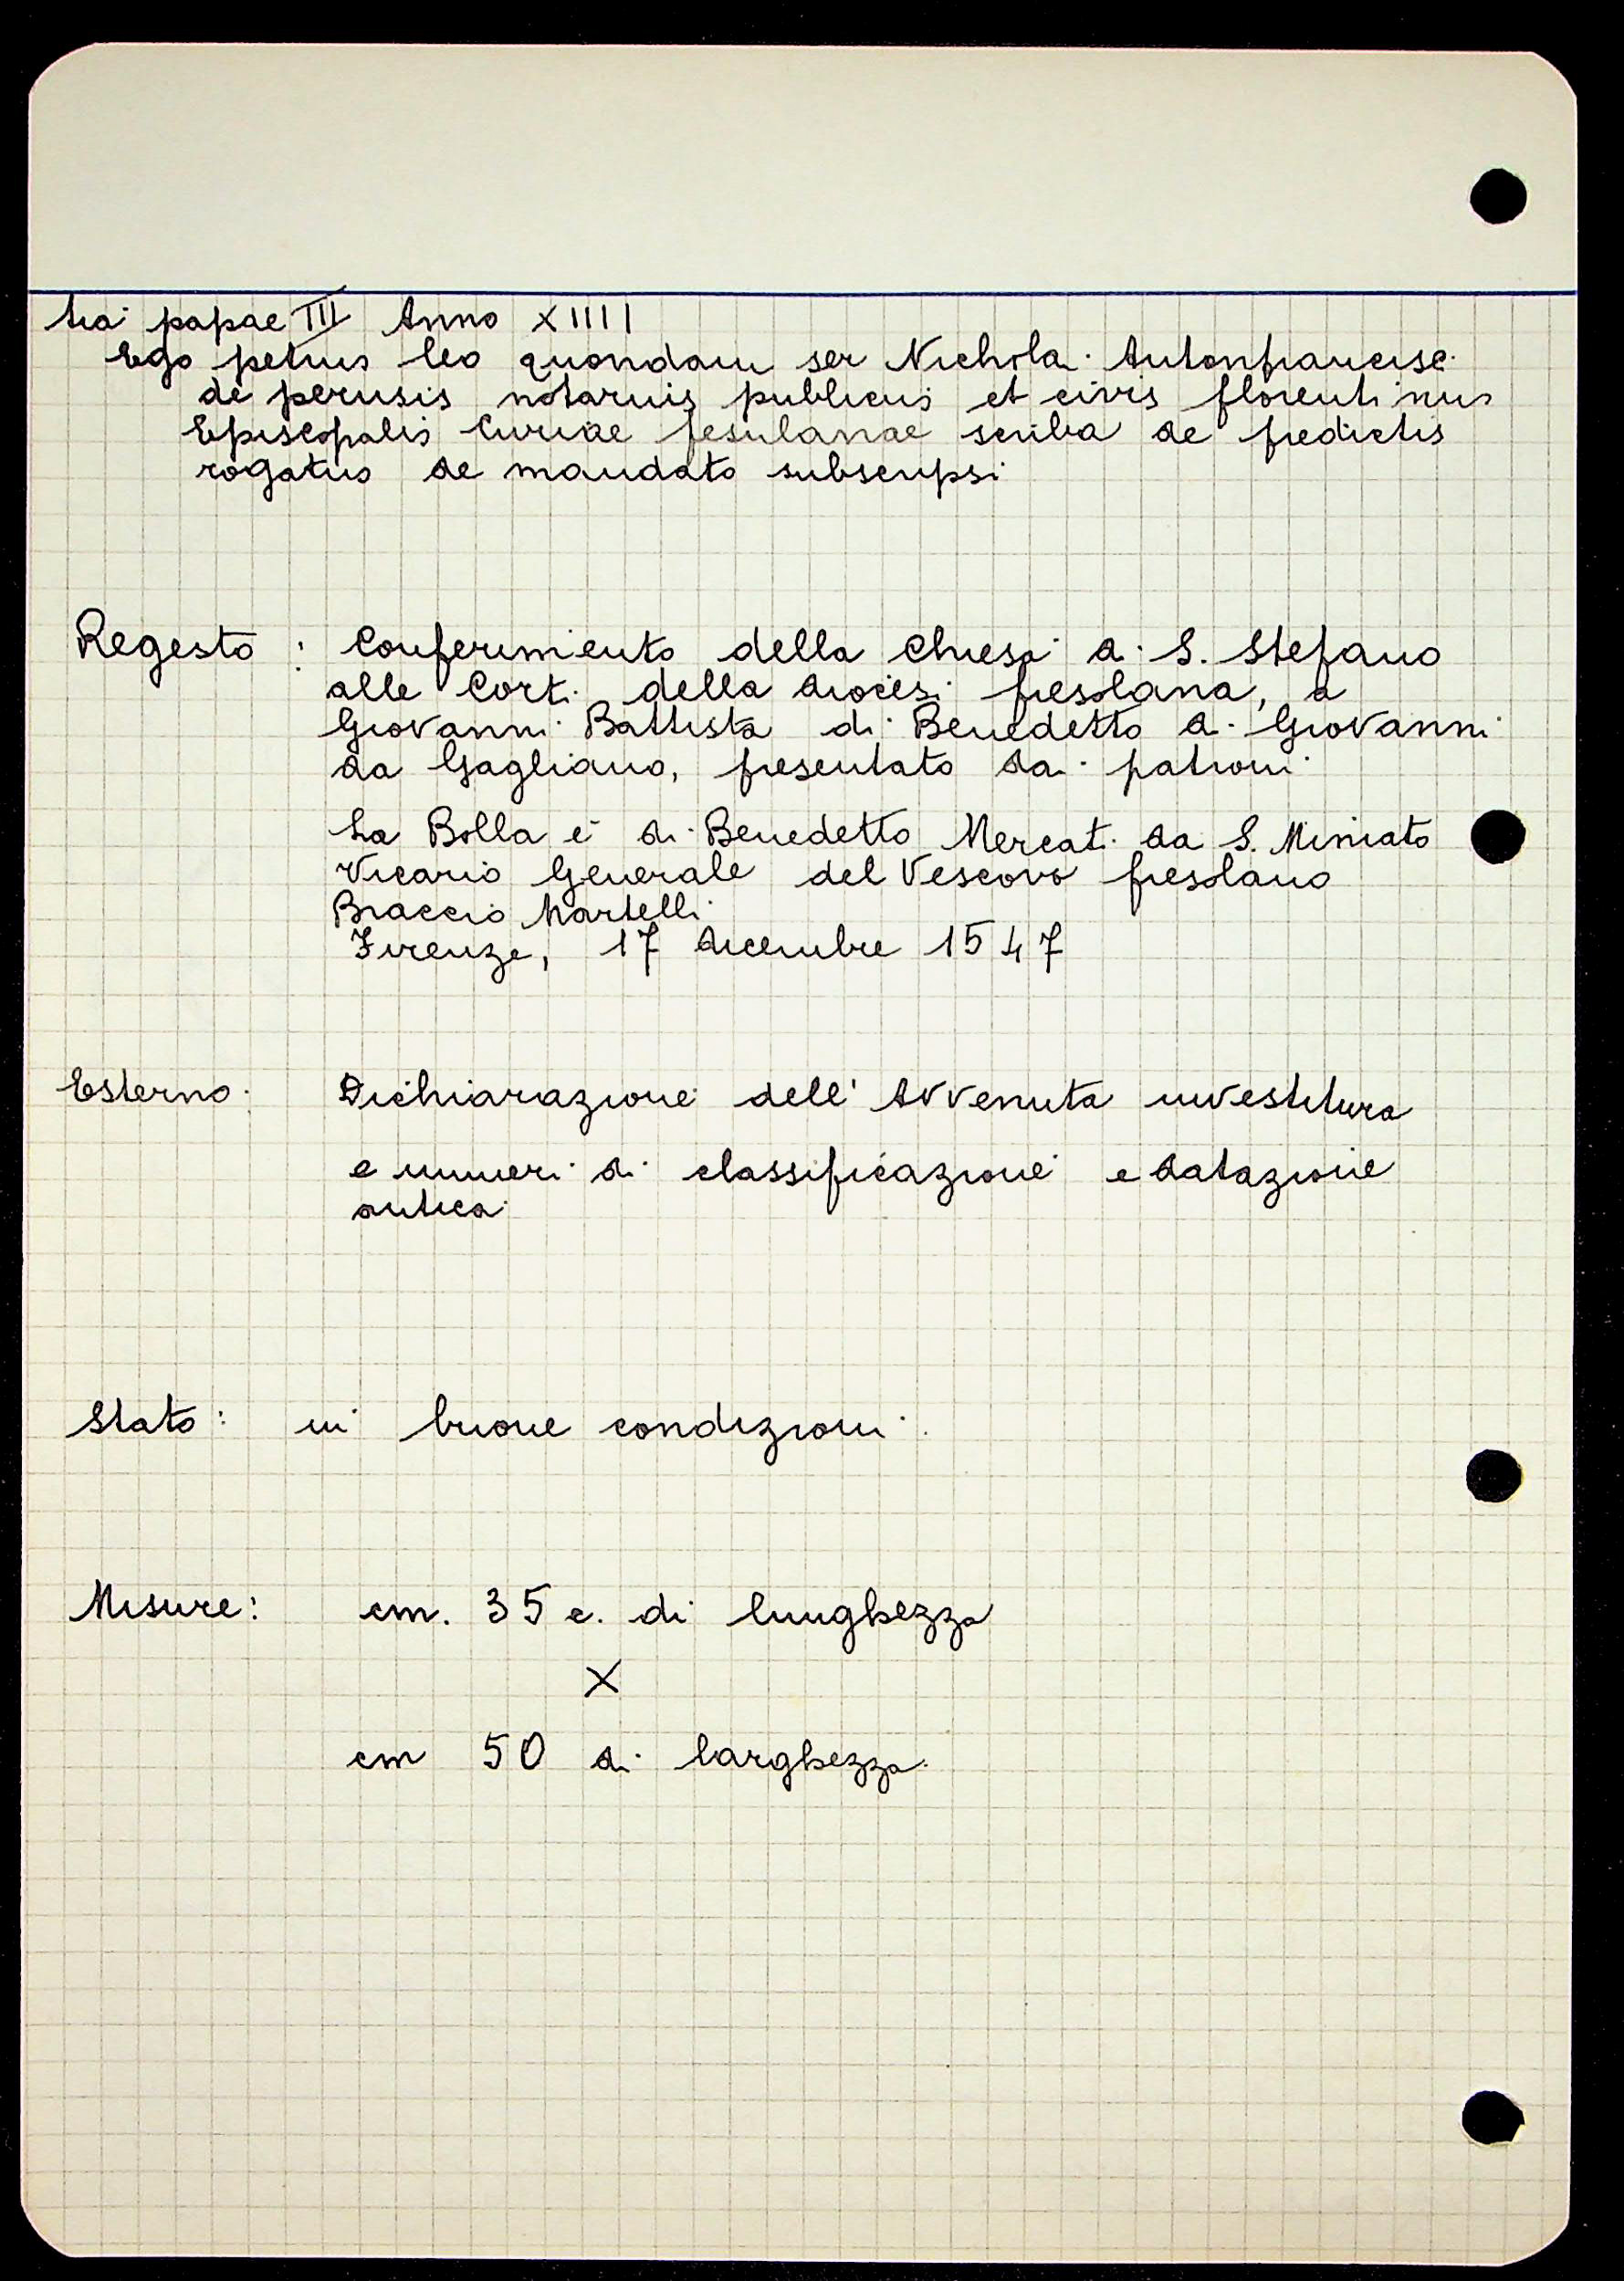 tia papae III Anno XIIII
Ego petrus leo quondam ser Nichola Antonfrancisc
de perusis notarius publicus et civis florentinus
Episcopalis Curiae fesulanae scriba de predictis
rogatus de mandato subscripsi
Regesto : Conferimento della Chiesa di S. Stefano
alle Corti della diocesi fiesolana, a
Giovanni Battista di Benedetto di Giovanni
da Gagliano, presentato dai patroni
La Bolla è di Benedetto Mercati da S. Miniato
Vicario Generale del Vescovo fiesolano
Braccio Martelli
Firenze, 17 dicembre 1547
Esterno: Dichiarazione dell' Avvenuta investitura
e numeri di classificazione e datazione
antica
Stato: in buone condizioni.
Misure: cm. 35 c. di lunghezza
X
cm 50 di larghezza.